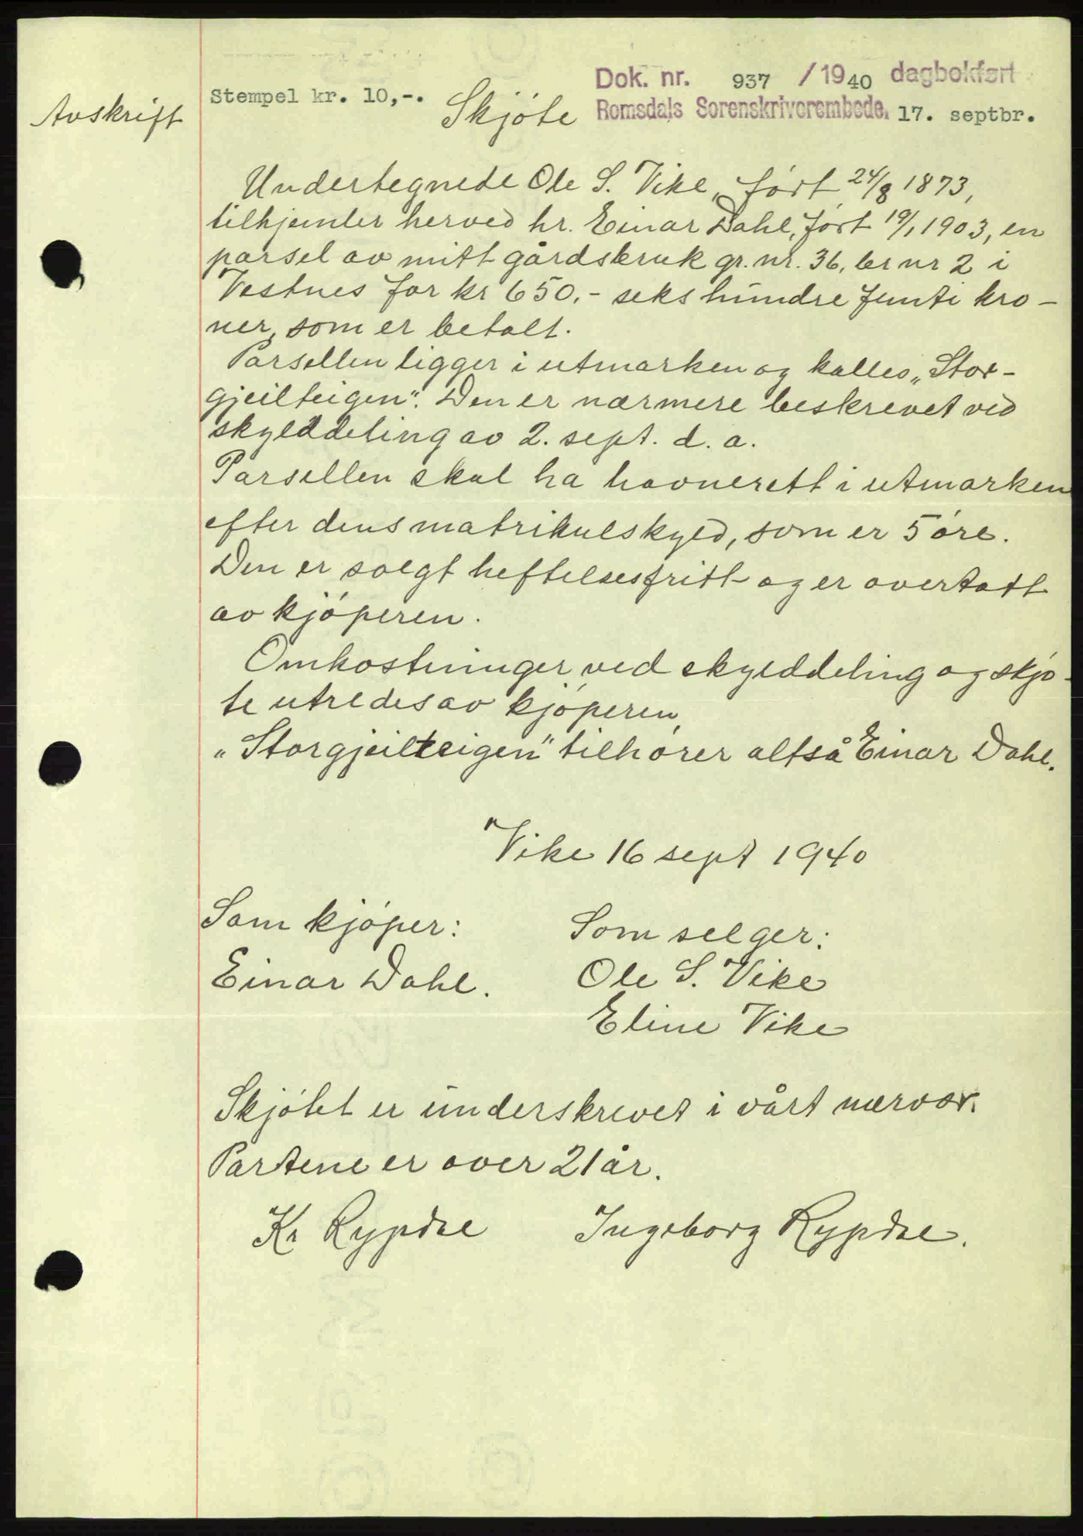 Dok. nr. 937 /1940 dagbokført
Stempel kr. 10,-.
Avskrift
Skjöte
Romsdals Sorenskriverembede. 17. septbr.
Undertegnede Ole S. Vike, fört 24/8 1873,
tilhjemler herved hr. Einar Dahl, fört 19/1 1903, en
parsel av mitt gårdsbruk gr. nr. 36, br nr 2 i
Vestnes for kr 650,- seks hundre femti kro-
ner, som er betalt.
Parsellen ligger i utmarken og kalles „Stor-
gjeilteigen". Den er nærmere beskrevet ved
skylddeling av 2. sept. d. a.
Parsellen skal ha havnerett i utmarken
efter dens matrikulskyld, som er 5 öre.
Den er solgt heftelsesfritt og er overtatt
av kjöperen.
Omkostninger ved skylddeling og skjö-
te utredes av kjöperen.
„Storgjeilteigen" tilhörer altså Einar Dahl.
Vike 16 sept 1940
Som kjöper: Som selger:
Einar Dahl. Ole S. Vike
Eline Vike
Skjötet er underskrevet i vårt nærvær.
Partene er over 21 år.
Kr Rypdal Ingeborg Rypdal.